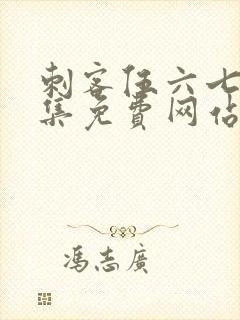 刺客伍六七
集免费网站
冯志广